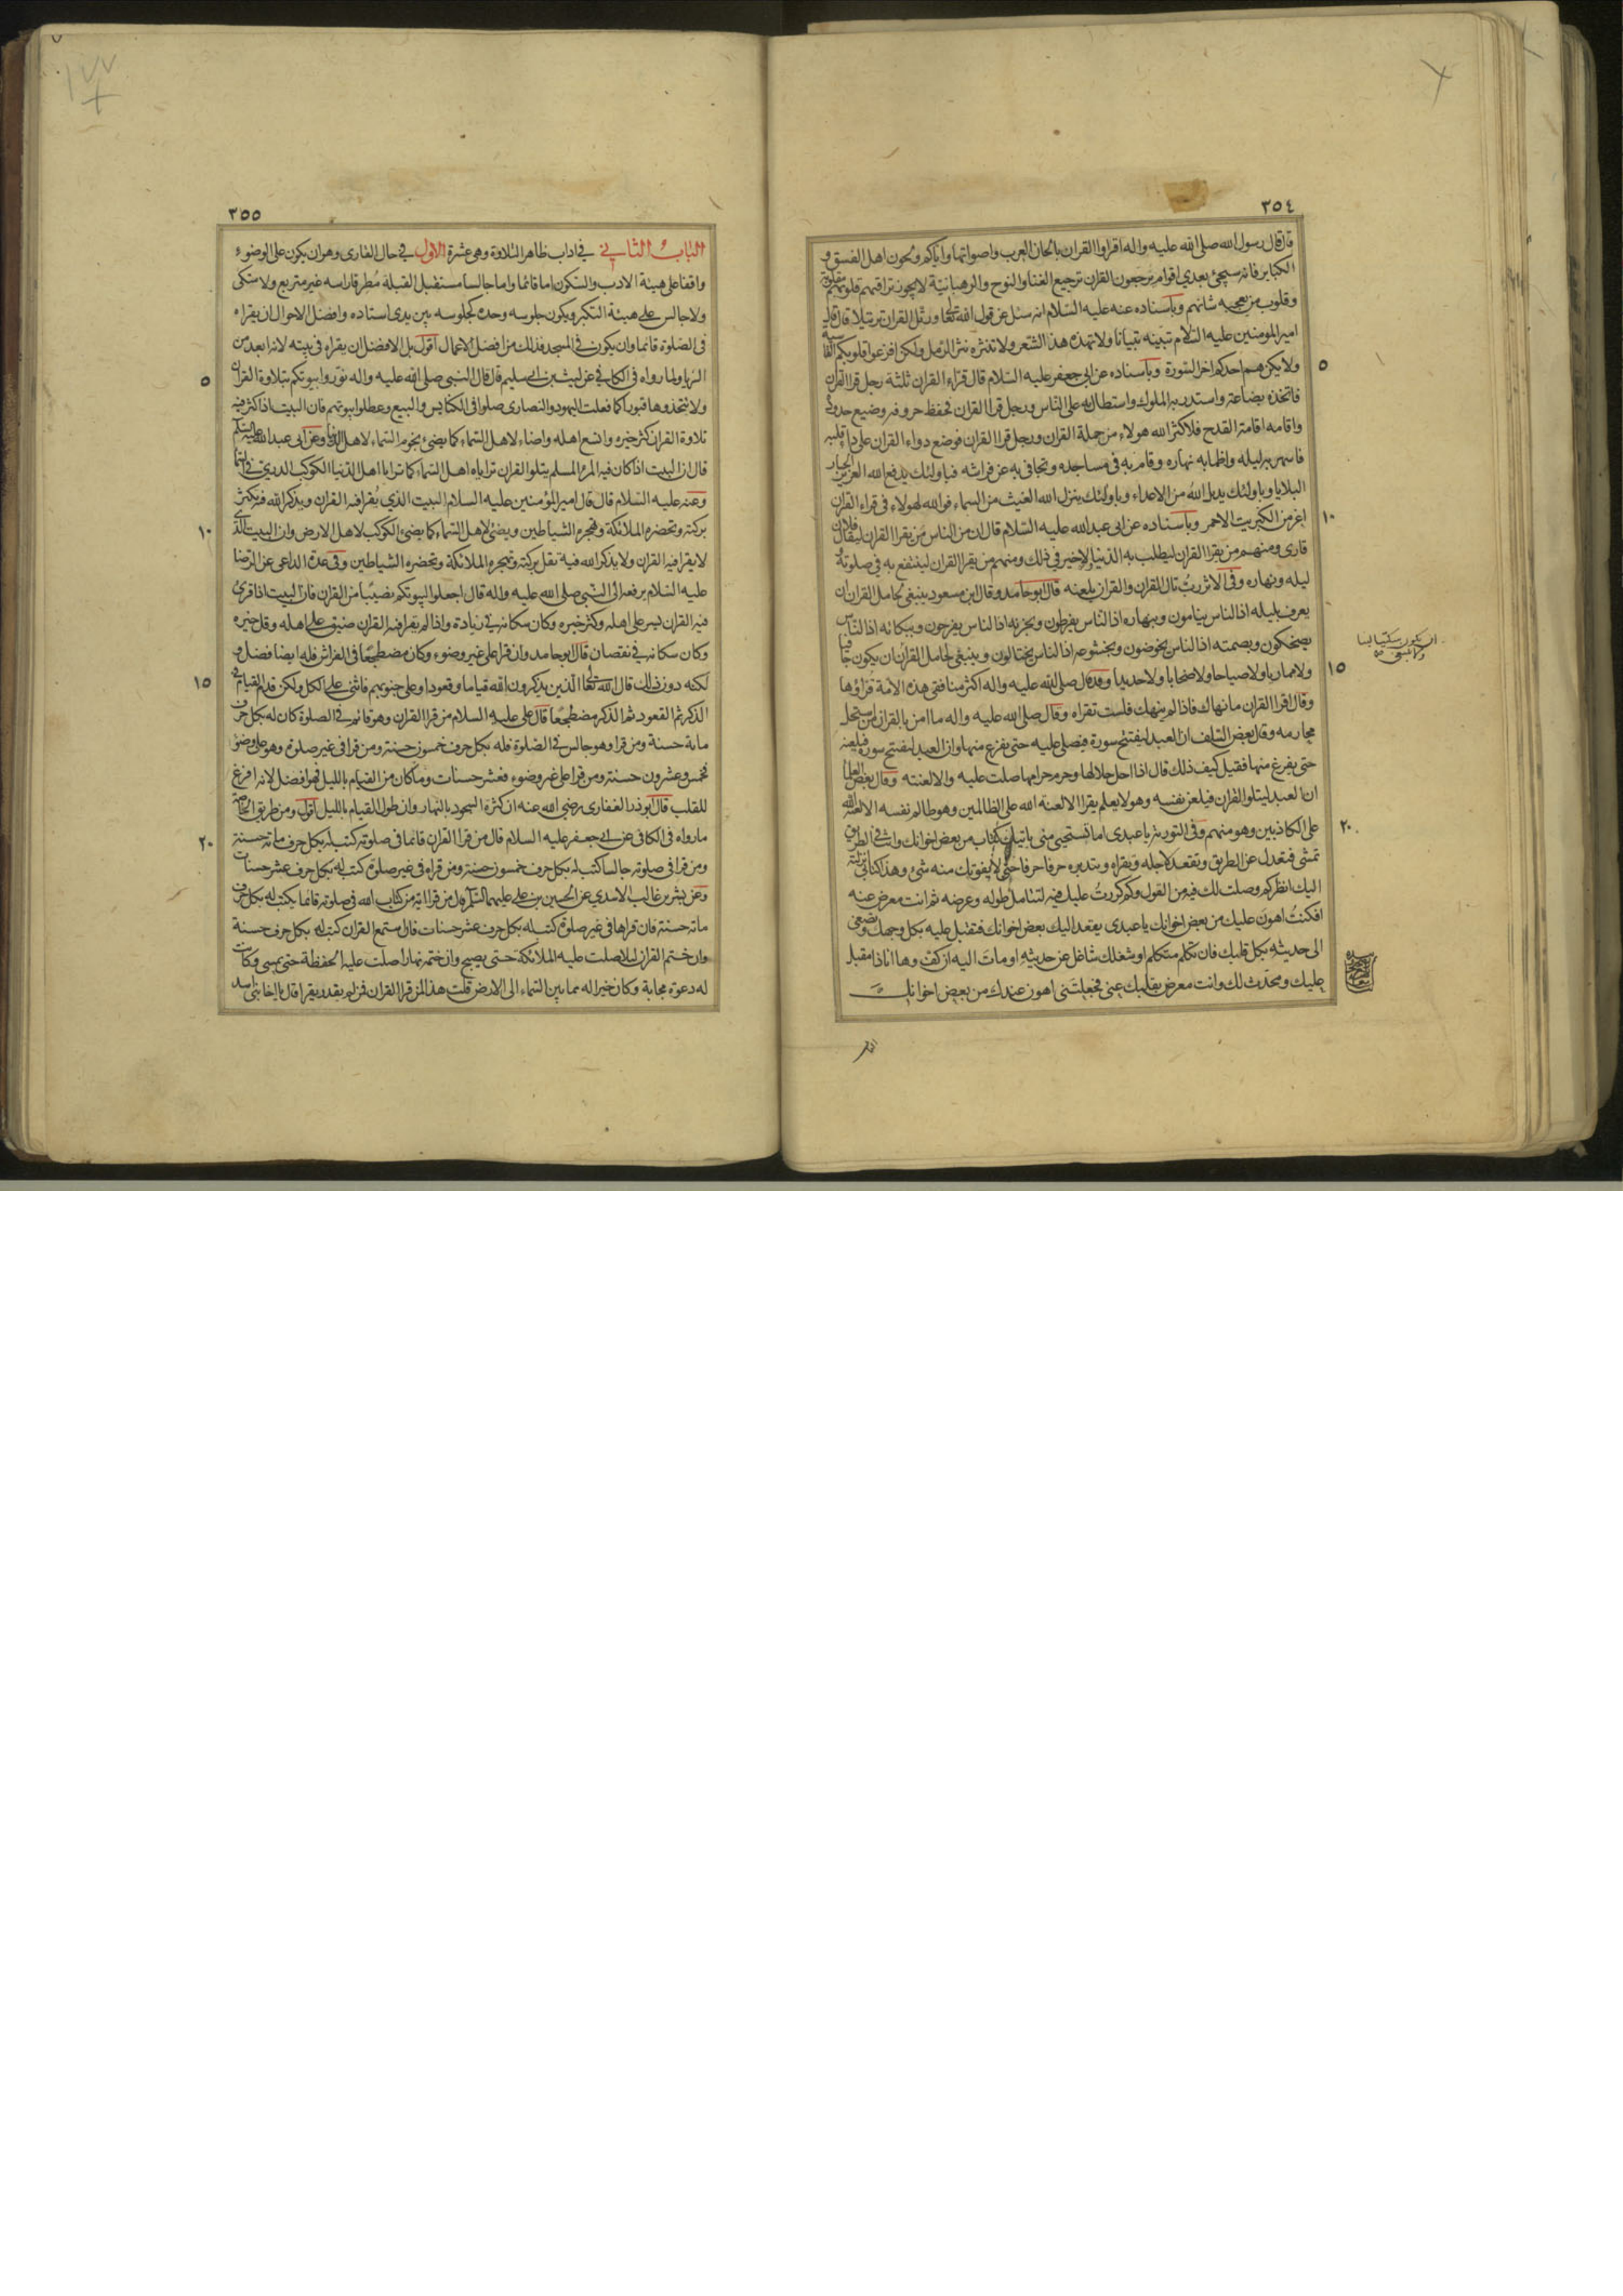 ٣٥٤
قال قال رسول الله صلى الله عليه واله اقراوا القران بالحان العرب واصواتها واياكم ولحون اهل الفسق و
الكبابر فانه سيجئ بعدي اقوام يرجعون القران ترجيع الغنا والنوح والرهبانية لا يجوز تراقيهم قلوبهم مقلوبة
وقلوب من يعجبه شانهم وباسناده عنه عليه السلام انه سئل عن قول الله تعالى ورتل القران ترتيلا قال قال
امير المومنين عليه السلام تبينه تبيانا ولا تهذه هذ الشعر ولا تنثره نثر الرمل ولكن افزعوا قلوبكم القاسية
ولا يكن هم احدكم اخر السورة وباسناده عن ابي جعفر عليه السلام قال قراء القران ثلثة رجل قرا القران
فاتخذه بضاعة واستدر به الملوك واستطال به على الناس ورجل قرا القران فحفظ حروفه وضيع حدوده
واقامه اقامة القدح فلا كثر الله هولاء من حملة القران ورجل قرا القران فوضع دواء القران على داء قلبه
فاسهر به ليله واظمابه نهاره وقام به في مساجده وتجافى به عن فراشه فباولئك يدفع الله العزيز الجبار
البلايا وباولئك يديل الله من الاعداء وباولئك ينزل الله الغيث من السماء فوالله لهولاء في قراء القران
اعز من الكبريت الاحمر وباسناده عن ابي عبد الله عليه السلام قال ان من الناس من يقرا القران ليقال فلان
قارى ومنهم من يقرا القران ليطلب به الدنيا ولا خير في ذلك ومنهم من يقرا القران لينتفع به في صلوته و
ليله ونهاره وفي الاثر رب تال للقران والقران يلعنه قال ابو حامد وقال ابن مسعود ينبغي لحامل القران ان
يعرف بليله اذا الناس ينامون وبنهاره اذا الناس يفرطون وبحزنه اذا الناس يفرحون وببكائه اذا الناس
يضحكون وبصمته اذا الناس يخوضون وبخشوعه اذا الناس يختالون وينبغي لحامل القران ان يكون جافيا
ولا مماريا ولا صياحا ولا صخابا ولا حديدا وقد قال صلى الله عليه واله اكثر منافقي هذه الامة قراؤها
وقال اقرا القران ما نهاك فاذا لم ينهك فلست تقراه وقال صلى الله عليه واله ما امن بالقران من استحل
محارمه وقال بعض السلف ان العبد ليفتتح سورة فيصلي عليه حتى يفرغ منها وان العبد ليفتتح سورة فيلعنه
حتى يفرغ منها فقيل كيف ذلك قال اذا احل حلالها وحرم حرامها صلت عليه والا لعنته وقال بعض العلما
ان العبد ليتلوا القران فيلعن نفسه وهو لا يعلم يقرا الا لعنة الله على الظالمين وهو ظالم نفسه الا لعنة الله
على الكاذبين وهو منهم وفي التورية يا عبدي اما تستحيي مني ياتيك كتاب من بعض اخوانك وانت في الطريق
تمشي فتعدل عن الطريق وتقعد لاجله وتقراه وتتدبره حرفا حرفا حتى لا يفوتك منه شيء وهذا كتابي انزلته
اليك انظر كم وصلت لك فيه من القول وكم كررت عليك فيه لتتامل طوله وعرضه ثم انت معرض عنه
افكنت اهون عليك من بعض اخوانك يا عبدي يقعد اليك بعض اخوانك فتقبل عليه بكل وجهك وتصغي
الى حديثه بكل قلبك فان تكلم متكلم او شغلك شاغل عن حديثه اومات اليه ان كف وها انا ذا مقبل
عليك ومحدث لك وانت معرض بقلبك عني فجعلتني اهون عندك من بعض اخوانك
٥
١٠
١٥
٢٠
٣٥٥
الباب الثاني في اداب ظاهر التلاوة وهي عشرة الاول في حال القارى وهو ان يكون على الوضوء
واقفا على هيئة الادب والسكون اما قائما واما جالسا مستقبل القبلة مطرقا راسه غير متربع ولا متكى
ولا جالس على هيئة التكبر ويكون جلوسه وحده كجلوسه بين يدى استاده وافضل الاحوال ان يقراه
في الصلوة قائما وان يكون في المسجد فذلك من افضل الاعمال اقول بل الافضل ان يقراه في بيته لانه ابعد من
الريا ولما رواه في الكافي عن ليث بن ابي سليم قال قال النبي صلى الله عليه واله نوروا بيوتكم بتلاوة القران
ولا تتخذوها قبورا كما فعلت اليهود والنصارى صلوا في الكنايس والبيع وعطلوا بيوتهم فان البيت اذا كثر فيه
تلاوة القران كثر خيره واتسع اهله واضاء لاهل السماء كما يضيء نجوم السماء لاهل الدنيا وعن ابي عبد الله عليه السلم
قال ان البيت اذا كان فيه المرء المسلم يتلو القران تراياه اهل السماء كما ترايا اهل الدنيا الكوكب الدري في السما
وعنه عليه السلام قال قال امير المؤمنين عليه السلام البيت الذي يقرا فيه القران ويذكر الله فيه تكثر
بركته وتحضره الملائكة وتهجره الشياطين ويضيء لاهل السماء كما يضيء الكوكب لاهل الارض وان البيت الذي
لا يقرا فيه القران ولا يذكر الله فيه تقل بركته وتهجره الملائكة وتحضره الشياطين وفي عدة الداعي عن الرضا
عليه السلام يرفعه الى النبي صلى الله عليه واله قال اجعلوا لبيوتكم نصيبا من القران فان البيت اذا قرئ
فيه القران يسر على اهله وكثر خيره وكان سكانه في زيادة واذا لم يقرا فيه القران ضيق على اهله وقل خيره
وكان سكانه في نقصان قال ابو حامد وان قرا على غير وضوء وكان مضطجعا في الفراش فله ايضا فضل و
لكنه دون ذلك قال الله تعالى الذين يذكرون الله قياما وقعودا وعلى جنوبهم فاثنى على الكل ولكن قدم القيام في
الذكر ثم القعود ثم الذكر مضطجعا قال علي عليه السلام من قرا القران وهو قائم في الصلوة كان له بكل حرف
ماية حسنة ومن قرا وهو جالس في الصلوة فله بكل حرف خمسون حسنة ومن قرا في غير صلوة وهو على وضوء
فخمس وعشرون حسنة ومن قرا على غير وضوء فعشر حسنات وما كان من القيام بالليل فهو افضل لانه افرغ
للقلب قال ابو ذر الغفارى رضي الله عنه ان كثرة السجود بالنهار وان طول القيام بالليل اقول ومن طريق الخاصة
ما رواه في الكافي عن ابي جعفر عليه السلام قال من قرا القران قائما في صلوته كتب له بكل حرف ماية حسنة
ومن قرا في صلوته جالسا كتب له بكل حرف خمسون حسنة ومن قراه في غير صلوة كتب له بكل حرف عشر حسنات
وعن بشر بن غالب الاسدي عن الحسين بن علي عليهما السلم قال من قرا اية من كتاب الله في صلوته قائما يكتب له بكل حرف
ماية حسنة فان قراها في غير صلوة كتب له بكل حرف عشر حسنات فان استمع القران كتب له بكل حرف حسنة
وان ختم القران ليلا صلت عليه الملائكة حتى يصبح وان ختمه نهارا صلت عليه الحفظة حتى يمسي وكانت
له دعوة مجابة وكان خيرا له مما بين السماء الى الارض قلت هذا لمن قرا القران فمن لم يقدر يقرا قال يا اخا بني اسد
٥
١٠
١٥
٢٠